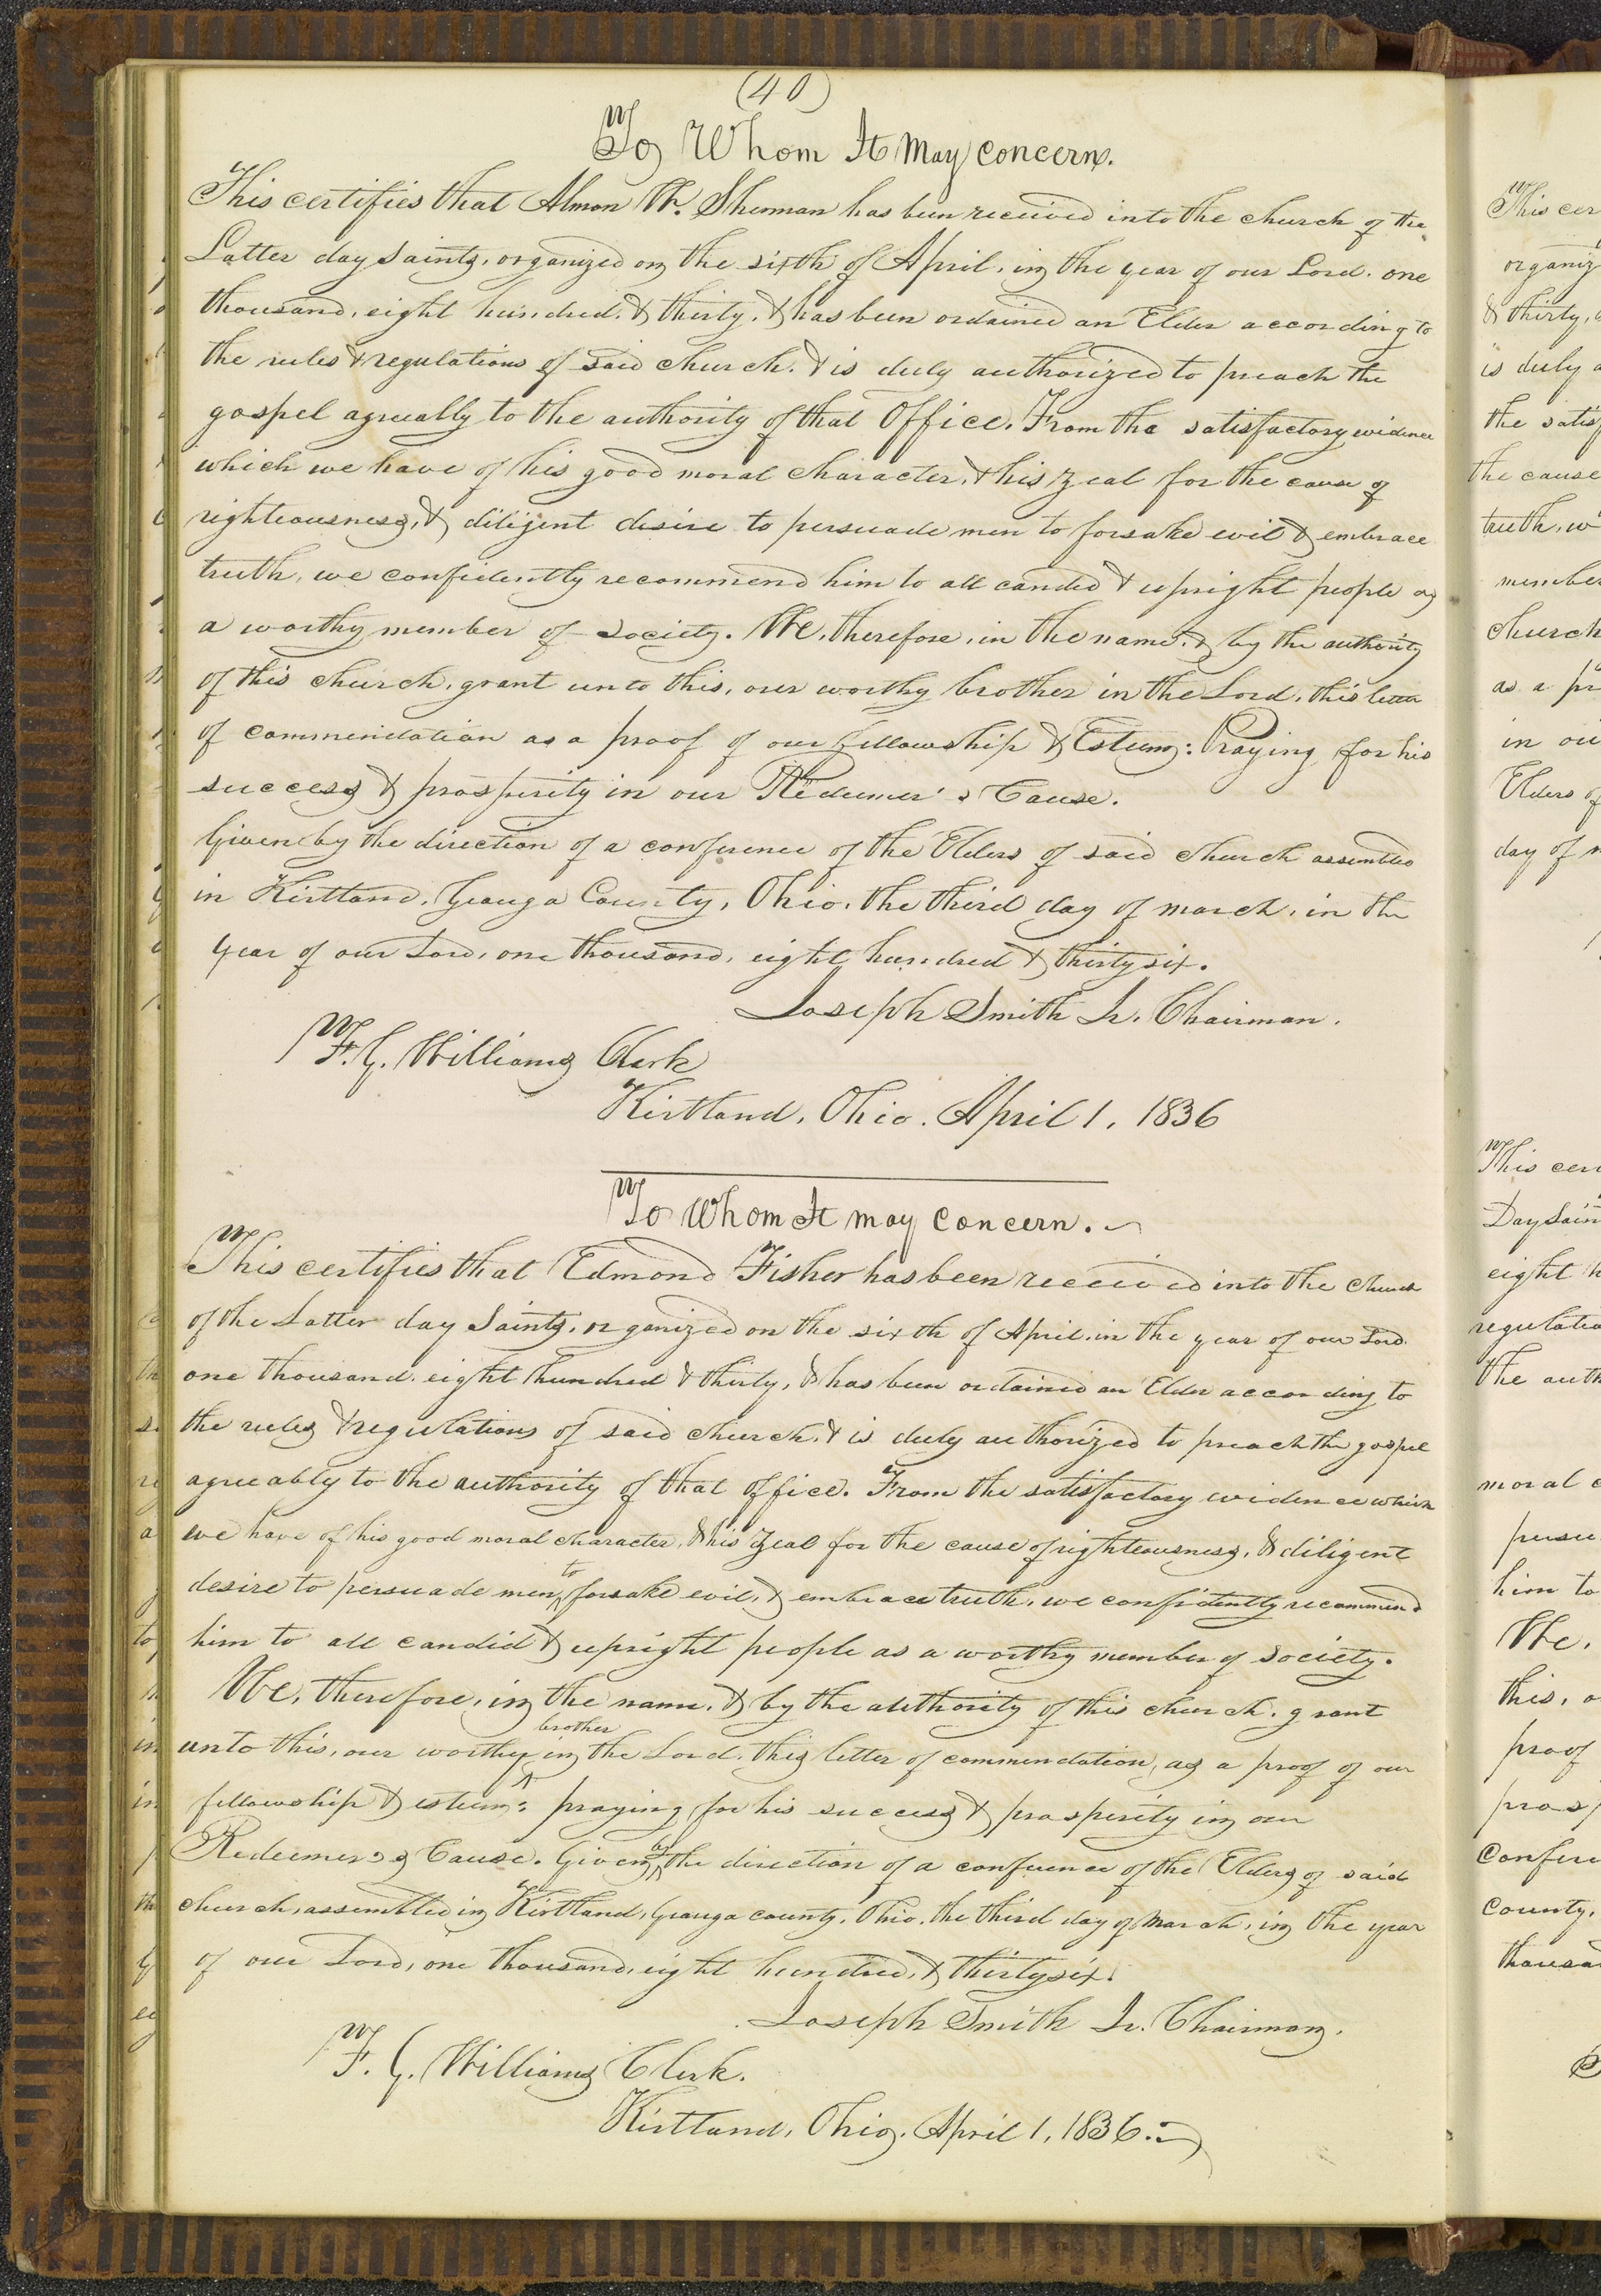 (40)
To Whom It May concern.
This certifies that Almon W. Sherman has been received into the church of the
Latter day saints, organized on the sixth of April, in the year of our Lord, one
thousand, eight hundred, & thirty, & has been ordained an Elder according to
the rules & regulations of said church, & is duly authorized to preach the
gospel agreeally to the authority of that Office. From the satisfactory evidence
which we have of his good moral character, & his zeal for the cause of
righteousness, & diligent desire to persuade men to forsake evil & embrace
truth, we confidently recommend him to all candid & upright people as
a worthy member of society. We, therefore, in the name, & by the authority
of this church, grant unto this, our worthy brother in the Lord, this letter
of commendation as a proof of our fellowship & Esteem: Praying for his
success & prosperity in our Redeemer's Cause.
Given by the direction of a conference of the Elders of said church assembled
in Kirtland, Geauga County, Ohio, the third day of march, in the
year of our Lord, one thousand, eight hundred & thirty six.
Joseph Smith Jr. Chairman.
F. G. Williams Clerk
Kirtland, Ohio. April 1, 1836
To Whom It may concern.
This certifies that Edmond Fisher has been received into the church
of the Latter day Saints, organized on the sixth of April, in the year of our Lord
one thousand, eight hundred & thirty, & has been ordained an Elder according to
the rules & regulations of said church, & is duly authorized to preach the gospel
agreeably to the authority of that office. From the satisfactory evidence which
we have of his good moral character, & his zeal for the cause of righteousness, & diligent
desire to persuade men to forsake evil, & embrace truth, we confidently recommend
him to all candid & upright people as a worthy member of society.
We, therefore, in the name, & by the authority of this church, grant
unto this, our worthy brother in the Lord, this letter of commendation, as a proof of our
fellowship & esteem: praying for his success & prosperity in our
Redeemer's Cause. Given by the direction of a conference of the Elders of said
church, assembled in Kirtland, Geauga county, Ohio, the third day of March, in the year
of our Lord, one thousand, eight hundred, & thirty six.
Joseph Smith Jr. Chairman.
F. G. Williams Clerk.
Kirtland, Ohio. April 1, 1836.
This cer
organiz
& thirty,
is duly a
the satisf
the cause
truth, w
member
church
as a pr
in ou
Elders of
day of m
This cer
Day Sain
eight h
regulatio
the auth
moral c
persu
him to
We,
this, o
proof
prosp
confere
county,
thousan